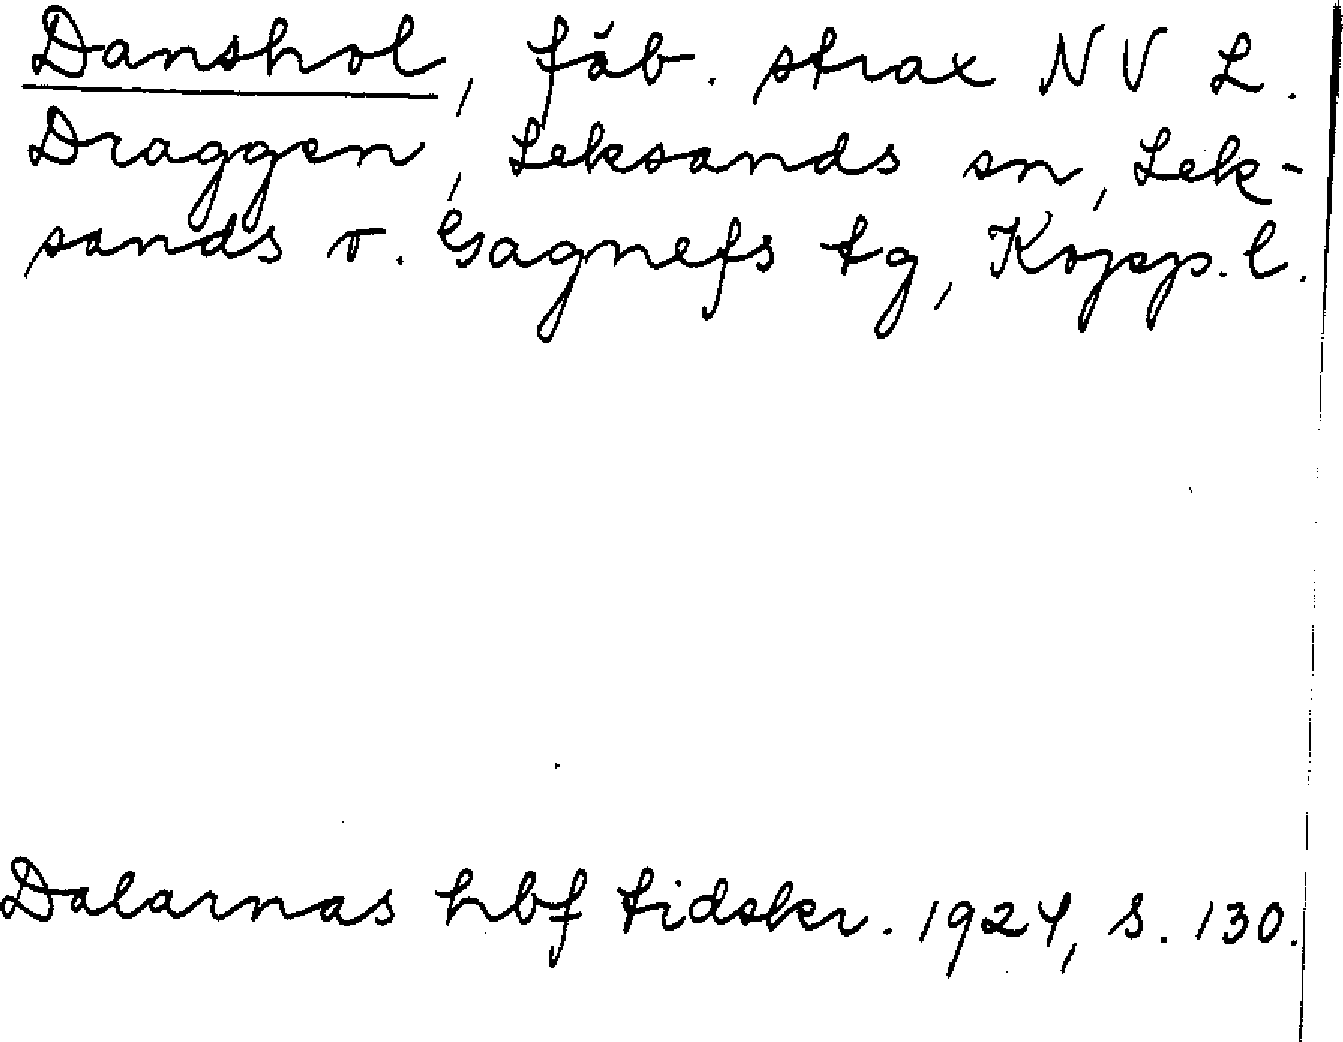 Danshol, fäb. strax NV L.
Draggen, Leksands sn, Lek-
sands o. Gagnefs tg, Kopp. l.
Dalarnas hbf tidskr. 1924, s. 130.